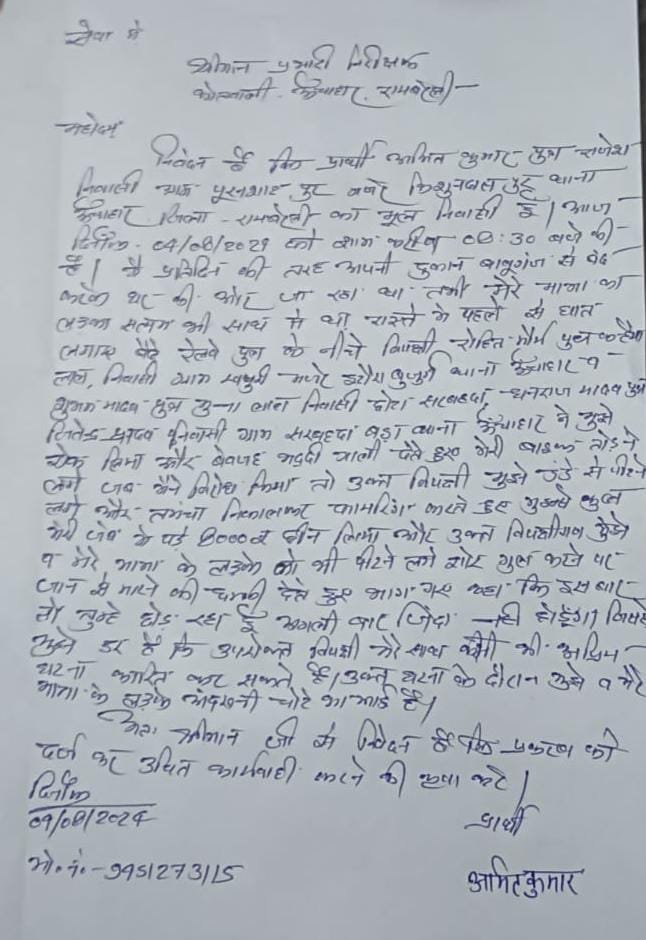 सेवा में
श्रीमान प्रभारी निरीक्षक
कोतवाली ऊँचाहार, रायबरेली
महोदय,
निवेदन है कि प्रार्थी अमित कुमार पुत्र राजेश
निवासी ग्राम पूरनशाह पुर मजरे किशुनदास पुर थाना
ऊँचाहार जिला रायबरेली का मूल निवासी है। आज
दिनाँक - 04/08/2024 को शाम करीब 08:30 बजे की
है। मैं प्रतिदिन की तरह अपनी दुकान बाबूगंज से बंद
करके घर की ओर जा रहा था तभी मेरे मामा का
लड़का सत्यम भी साथ में था रास्ते में पहले से घात
लगाए बैठे रेलवे पुल के नीचे विपक्षी रोहित मौर्य पुत्र
लाल, निवासी ग्राम मजरे बुजुर्ग थाना ऊँचाहार व
शुभम यादव पुत्र निवासी छोटा सरबहदा, धनराज यादव पुत्र
जितेन्द्र यादव निवासी ग्राम सरबहदा बड़ा थाना ऊँचाहार ने मुझे
रोक लिया और बेवजह भद्दी गाली देते हुए मेरी बाइक तोड़ने
लगे जब मैंने विरोध किया तो उक्त विपक्षी मुझे डंडे से पीटने
लगे और तमंचा निकालकर फायरिंग करते हुए मुझसे
मेरी जेब में पड़े 8000रु छीन लिया और उक्त विपक्षीगण मुझे
व मेरे मामा के लड़के को भी पीटने लगे शोर गुल करने पर
जान से मारने की धमकी देते हुए भाग गए कहा कि इस बार
तो तुम्हे छोड़ रहा हूँ अगली बार जिंदा नही छोड़ेंगा जिससे
मुझे डर है कि उपरोक्त विपक्षी मेरे साथ कभी भी अप्रिय
घटना कारित कर सकते है। उक्त घटना के दौरान मुझे व मेरे
मामा के लड़के अंदरूनी चोटे आ गई है।
अतः श्रीमान जी से निवेदन है कि प्रकरण को
दर्ज कर उचित कार्यवाही करने की कृपा करें।
दिनाँक
04/08/2024
प्रार्थी
मो. नं. - 9451273115
अमित कुमार